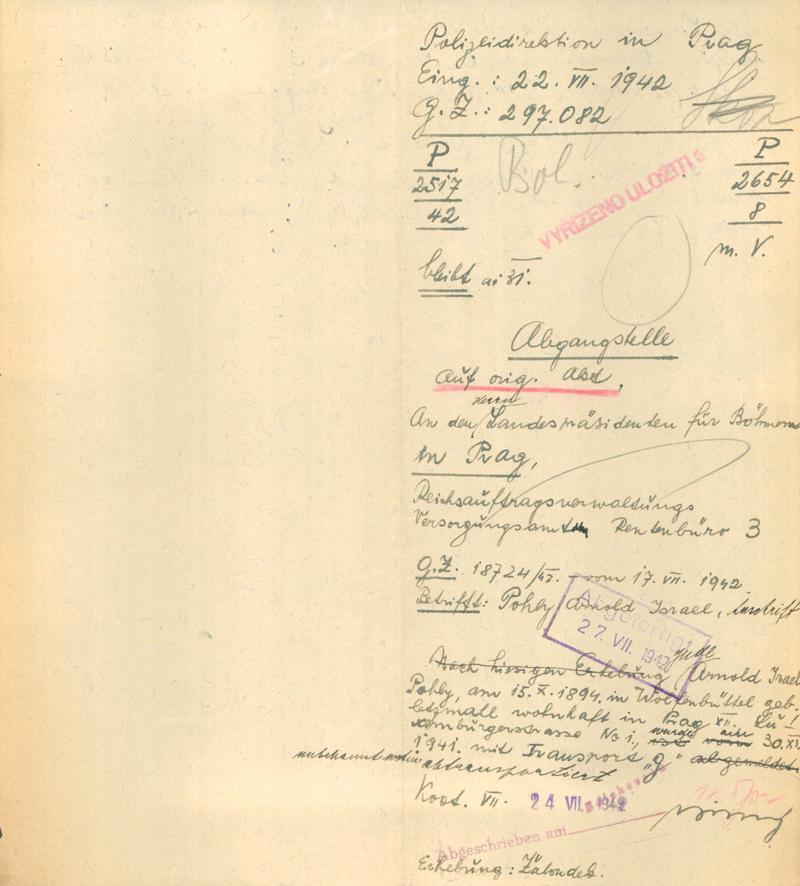 Polizeidirektion in Prag
Eing.: 22. VII. 1942
G.Z.: 297.082
P P
2517 Bol. 2654
42 8
VYŘÍZENO ULOŽITI
m. V.
bleibt
Abgangstelle
auf orig. Abt,
An den Landespräsidenten für Böhmen
in Prag,
Reichsauftragsverwaltungs
Versorgungsamt Rentenbüro 3
G.Z. 18724/VI. vom 17. VII. 1942
Betrifft: Pohly Arnold Israel, Anschrift
Abgefertigt
27. VII. 1942
Nach hiesigen Erhebung Jude Arnold Israel
Pohly, am 15. X. 1894. in Wolfenbüttel geb.
letzmall wohnhaft in Prag XII. Lu-
xemburgerstrasse Nr 1, wurde am 30. XI.
1941. mit Transport „g" abgemeldet.
unbekannt wohin abtransportiert
Koot. VII. 24 VII. 1942
Abgeschrieben am
Erhebung: Žalondek.